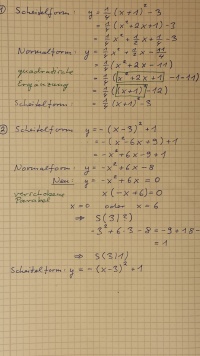 ① Scheitelform: y = 1/4 (x+1)² - 3
= 1/4 (x² + 2x + 1) - 3
= 1/4 x² + 1/2 x + 1/4 - 3
Normalform: y = 1/4 x² + 1/2 x - 11/4
= 1/4 (x² + 2x - 11)
quadratische = 1/4 (x² + 2x + 1 - 1 - 11)
Ergänzung = 1/4 ((x+1)² - 12)
Scheitelform: = 1/4 (x+1) - 3
② Scheitelform y = -(x-3)² + 1
= -(x² - 6x + 9) + 1
= -x² + 6x - 9 + 1
Normalform: y = -x² + 6x - 8
Neu: y = -x² + 6x = 0
verschobene x(-x+6) = 0
Parabel x = 0 oder x = 6
⇒ S(3|?)
-3² + 6·3 - 8 = -9 + 18 - 8
= 1
⇒ S(3|1)
Scheitelform: y = -(x-3)² + 1